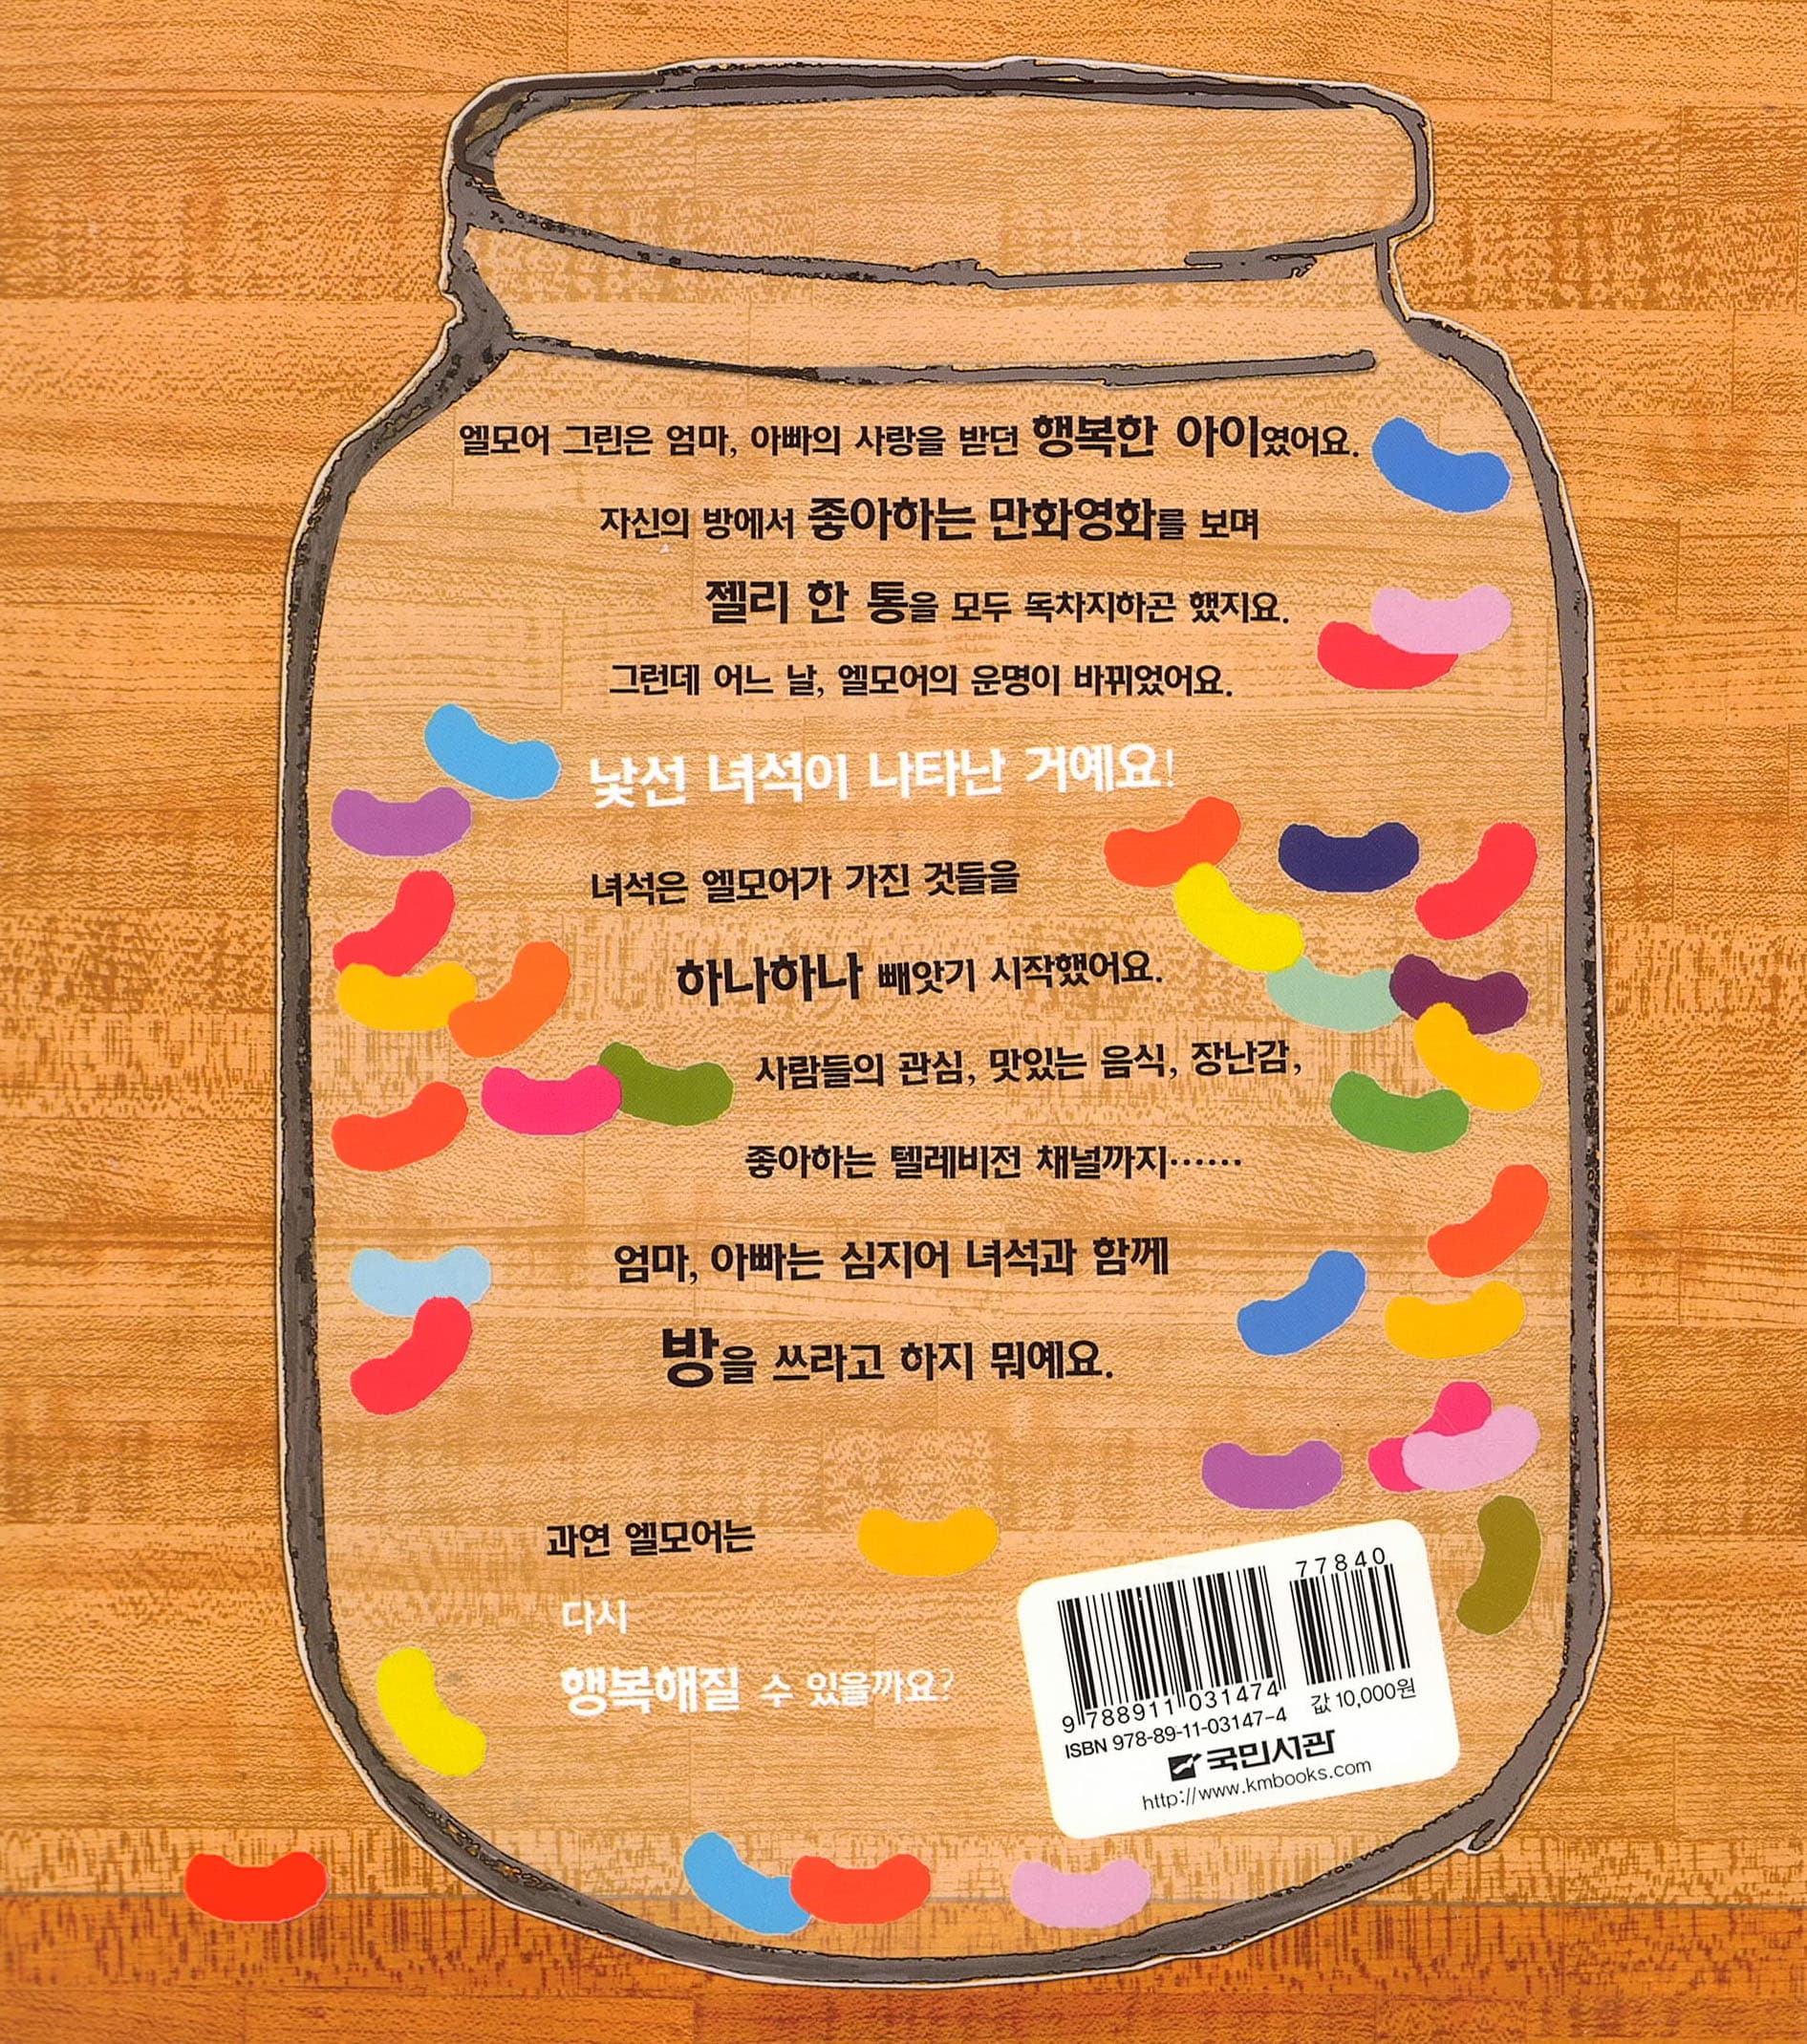 엘모어 그린은 엄마, 아빠의 사랑을 받던 행복한 아이였어요.
자신의 방에서 좋아하는 만화영화를 보며
젤리 한 통을 모두 독차지하곤 했지요.
그런데 어느 날, 엘모어의 운명이 바뀌었어요.
낯선 녀석이 나타난 거예요!
녀석은 엘모어가 가진 것들을
하나하나 빼앗기 시작했어요.
사람들의 관심, 맛있는 음식, 장난감,
좋아하는 텔레비전 채널까지……
엄마, 아빠는 심지어 녀석과 함께
방을 쓰라고 하지 뭐예요.
과연 엘모어는
다시
행복해질 수 있을까요?
77840
9 788911 031474
값 10,000원
ISBN 978-89-11-03147-4
국민서관
http://www.kmbooks.com